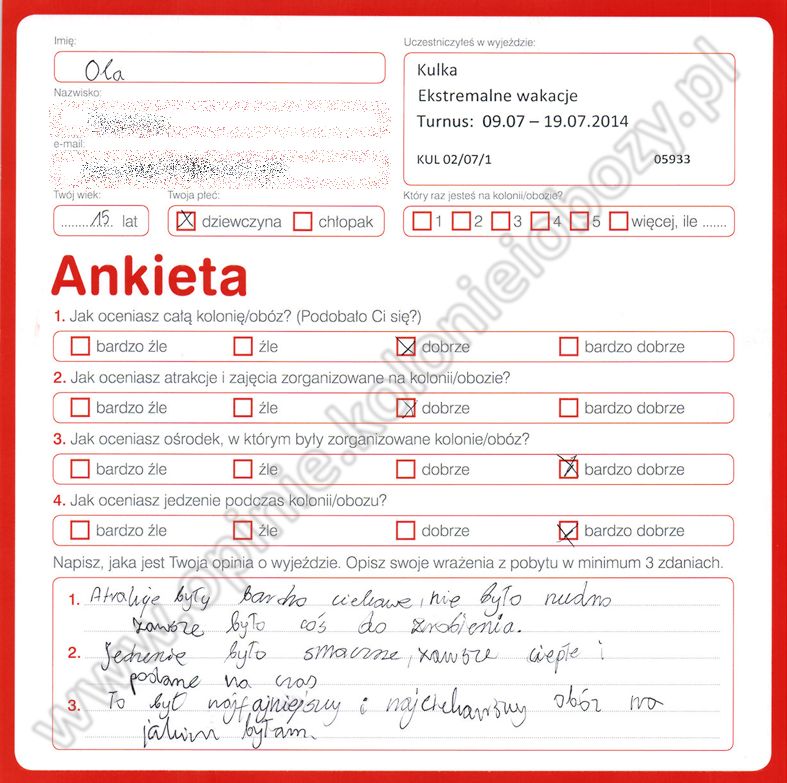 Imię:
Ola
Nazwisko:
e-mail:
Twój wiek:
15 lat
Twoja płeć:
dziewczyna chłopak
Uczestniczyłeś w wyjeździe:
Kulka
Ekstremalne wakacje
Turnus: 09.07 – 19.07.2014
KUL 02/07/1 05933
Który raz jesteś na kolonii/obozie?
1 2 3 4 5 więcej, ile .......
Ankieta
1. Jak oceniasz całą kolonię/obóz? (Podobało Ci się?)
bardzo źle źle dobrze bardzo dobrze
2. Jak oceniasz atrakcje i zajęcia zorganizowane na kolonii/obozie?
bardzo źle źle dobrze bardzo dobrze
3. Jak oceniasz ośrodek, w którym były zorganizowane kolonie/obóz?
bardzo źle źle dobrze bardzo dobrze
4. Jak oceniasz jedzenie podczas kolonii/obozu?
bardzo źle źle dobrze bardzo dobrze
Napisz, jaka jest Twoja opinia o wyjeździe. Opisz swoje wrażenia z pobytu w minimum 3 zdaniach.
1. Atrakcje były bardzo ciekawe, nie było nudno
zawsze było coś do zrobienia.
2. Jedzenie było smaczne, zawsze ciepłe i
podane na czas
3. To był najfajniejszy i najciekawszy obóz na
jakim byłam.
www.opinie.kolonieiobozy.pl